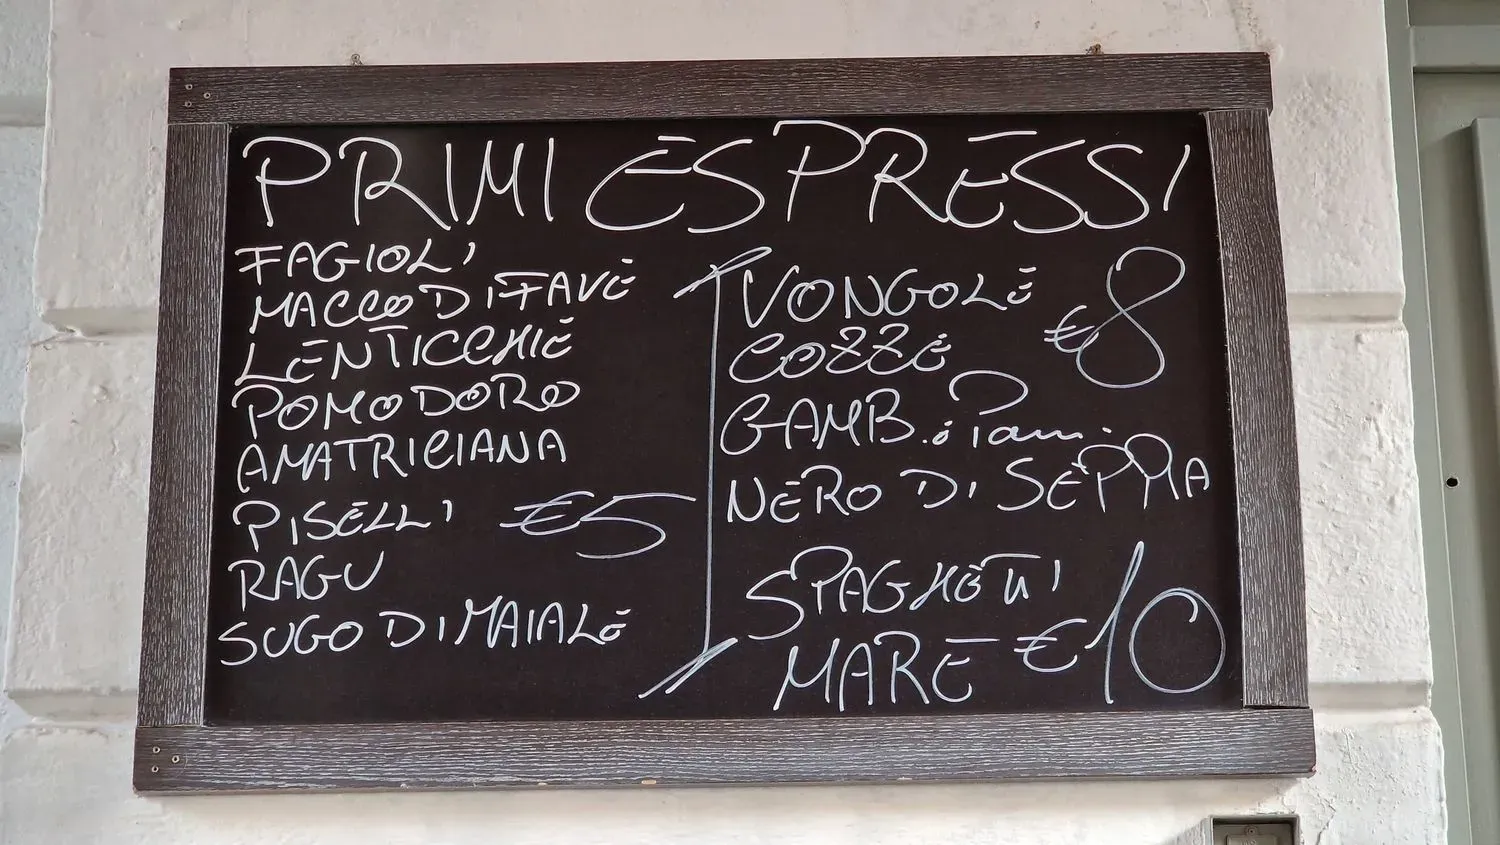 PRIMI ESPRESSI
FAGIOLI
MACCO DI FAVE
LENTICCHIE
POMODORO
AMATRICIANA
PISELLI €5
RAGU
SUGO DI MAIALE
VONGOLE €8
COZZE
GAMB. e Pan.
NERO DI SEPPIA
SPAGHETTI
MARE €10